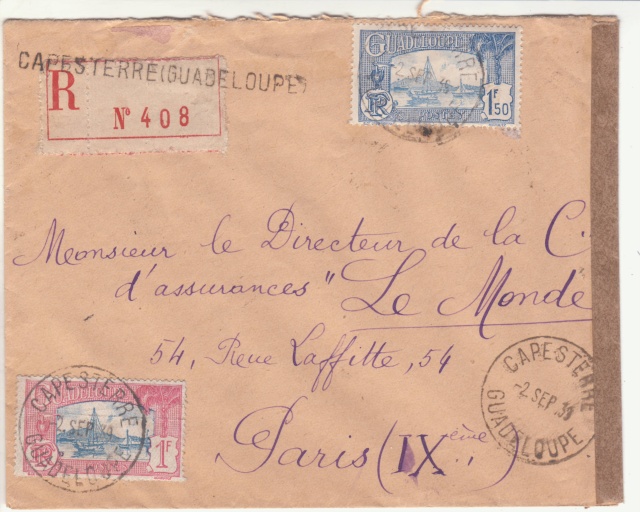 CAPESTERRE(GUADELOUPE)
R
N° 408
GUADELOUPE
RF
POSTES
1F50
Monsieur le Directeur de la C.
d'assurances "Le Monde
54, Rue Laffitte, 54
Paris (IXème)
CAPESTERRE
-2 SEP. 39
GUADELOUPE
CAPESTERRE
-2 SEP. 39
GUADELOUPE
GUADELOUPE
1F